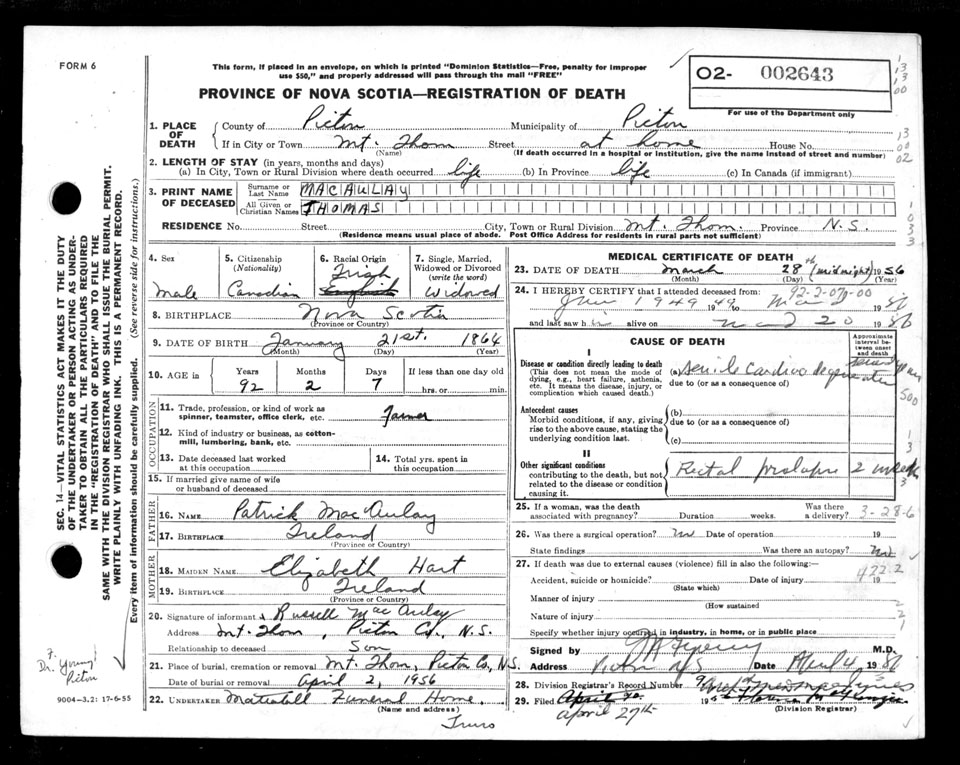 FORM 6
This form, if placed in an envelope, on which is printed "Dominion Statistics—Free, penalty for improper
use $50," and properly addressed will pass through the mail "FREE"
O2- 002643
For use of the Department only
PROVINCE OF NOVA SCOTIA—REGISTRATION OF DEATH
1. PLACE OF DEATH
County of Pictou Municipality of Pictou
If in City or Town Mt. Thom Street at home House No.
(Name) (If death occurred in a hospital or institution, give the name instead of street and number)
2. LENGTH OF STAY (in years, months and days)
(a) In City, Town or Rural Division where death occurred life (b) In Province life (c) In Canada (if immigrant)
3. PRINT NAME OF DECEASED
Surname or Last Name MACAULAY
All Given or Christian Names THOMAS
RESIDENCE No. Street City, Town or Rural Division Mt. Thom. Province N.S.
(Residence means usual place of abode. Post Office Address for residents in rural parts not sufficient)
4. Sex Male
5. Citizenship (Nationality) Canadian
6. Racial Origin Irish English
7. Single, Married, Widowed or Divorced (write the word) Widowed
8. BIRTHPLACE Nova Scotia
(Province or Country)
9. DATE OF BIRTH January 21st. 1864
(Month) (Day) (Year)
10. AGE in Years 92 Months 2 Days 7 If less than one day old hrs. or min.
OCCUPATION
11. Trade, profession, or kind of work as spinner, teamster, office clerk, etc. Farmer
12. Kind of industry or business, as cotton-mill, lumbering, bank, etc.
13. Date deceased last worked at this occupation
14. Total yrs. spent in this occupation
15. If married give name of wife or husband of deceased
FATHER
16. NAME Patrick MacAulay
17. BIRTHPLACE Ireland
(Province or Country)
MOTHER
18. MAIDEN NAME Elizabeth Hart
19. BIRTHPLACE Ireland
(Province or Country)
20. Signature of informant Russell MacAulay
Address Mt. Thom, Pictou Co., N.S.
Relationship to deceased Son
21. Place of burial, cremation or removal Mt. Thom, Pictou Co., N.S.
Date of burial or removal April 2, 1956
22. UNDERTAKER Mattatall Funeral Home
(Name and address)
Truro
MEDICAL CERTIFICATE OF DEATH
23. DATE OF DEATH March 28th (midnight) 1956
(Month) (Day) (Year)
24. I HEREBY CERTIFY that I attended deceased from
92-2-07-00
1949 1949
and last saw h alive on 20 19
CAUSE OF DEATH
Approximate interval between onset and death
I
Disease or condition directly leading to death
(This does not mean the mode of dying, e.g., heart failure, asthenia, etc. It means the disease, injury, or complication which caused death.)
(a) Senile Cardiac degeneration
due to (or as a consequence of)
Antecedent causes
Morbid conditions, if any, giving rise to the above cause, stating the underlying condition last.
(b)
due to (or as a consequence of)
(c)
II
Other significant conditions
contributing to the death, but not related to the disease or condition causing it.
Rectal prolapse 2 weeks
25. If a woman, was the death associated with pregnancy? Duration weeks. Was there a delivery?
3-28-6
26. Was there a surgical operation? no Date of operation 19
State findings Was there an autopsy? no
27. If death was due to external causes (violence) fill in also the following:—
Accident, suicide or homicide? Date of injury 19
(State which)
4222
Manner of injury
(How sustained)
Nature of injury
Specify whether injury occurred in industry, in home, or in public place
Signed by M.D.
Address Pictou N S Date April 4, 19
28. Division Registrar's Record Number 9
29. Filed April 20 19
April 27th
(Division Registrar)
SEC. 14—VITAL STATISTICS ACT MAKES IT THE DUTY
OF THE UNDERTAKER OR PERSON ACTING AS UNDER-
TAKER TO OBTAIN ALL THE PARTICULARS REQUIRED
IN THE "REGISTRATION OF DEATH" AND TO FILE THE
SAME WITH THE DIVISION REGISTRAR WHO SHALL ISSUE THE BURIAL PERMIT.
WRITE PLAINLY WITH UNFADING INK. THIS IS A PERMANENT RECORD.
Every item of information should be carefully supplied. (See reverse side for instructions.)
F.
Dr. Young
Pictou
9004-3.2: 17-6-55